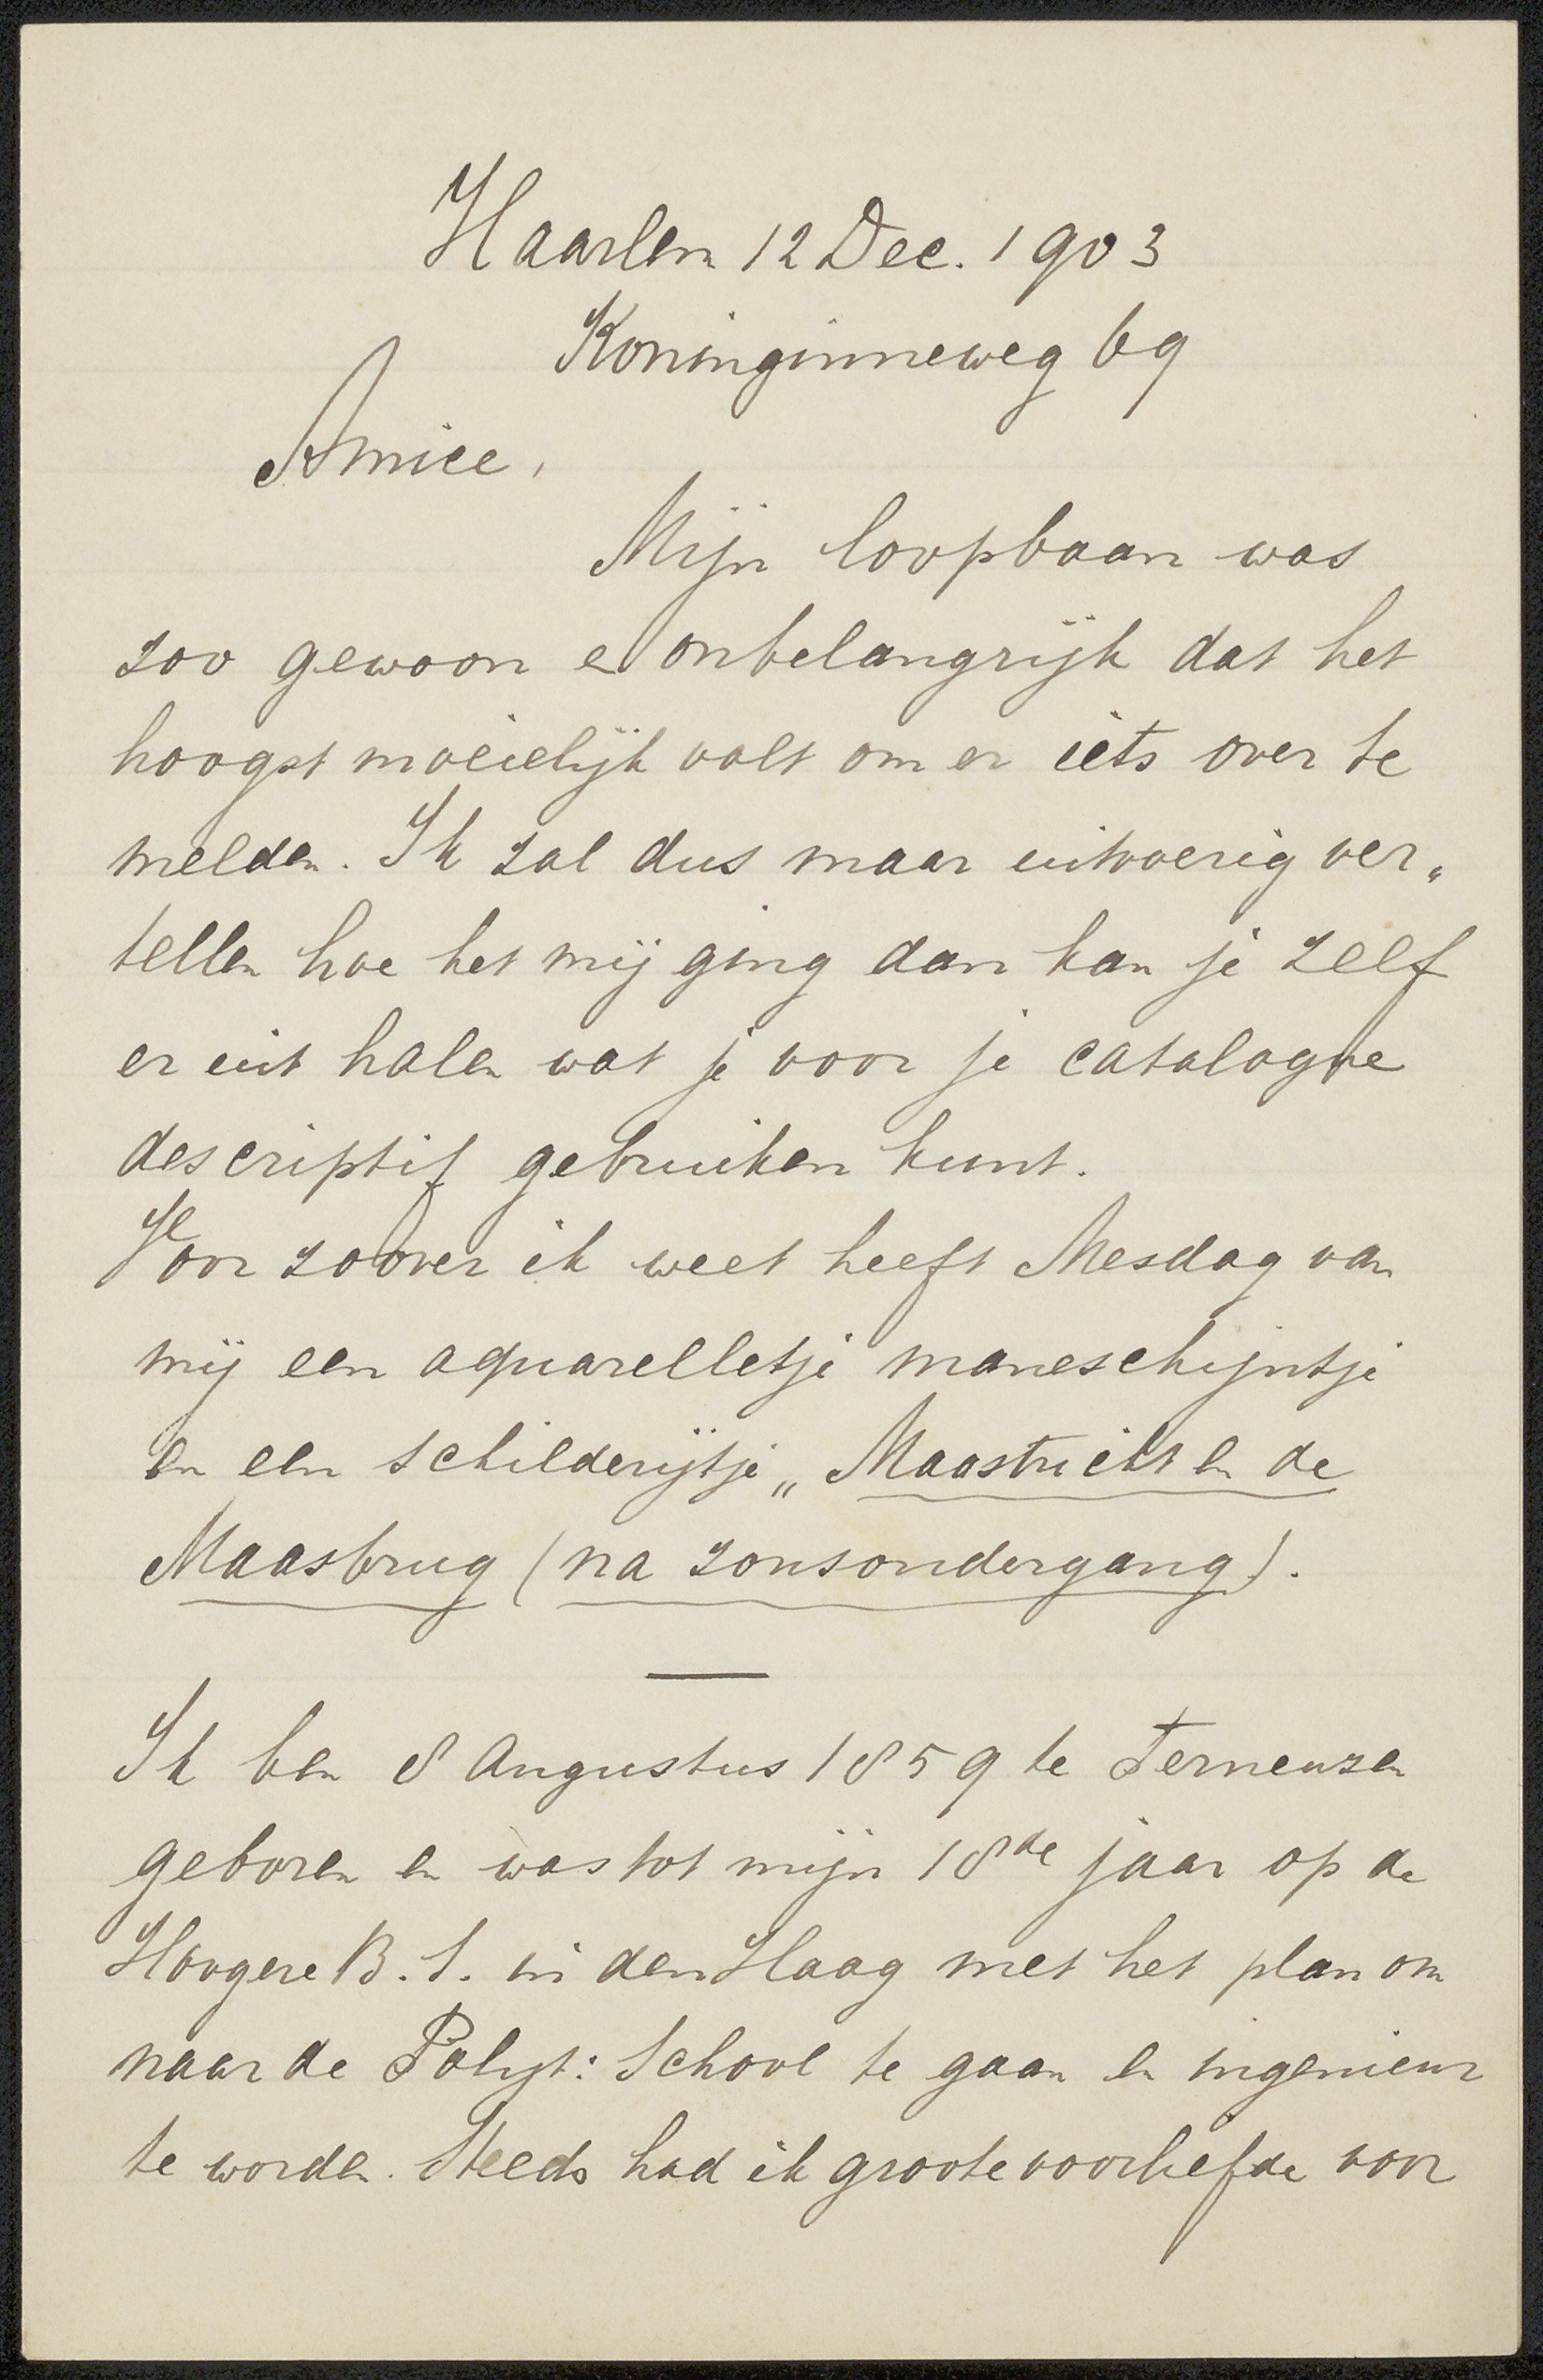 Haarlem 12 Dec. 1903
Koninginneweg 69
Amice,
Mijn loopbaan was
zoo gewoon en onbelangrijk dat het
hoogst moeielijk valt om er iets over te
melden. Ik zal dus maar uitvoerig ver„
tellen hoe het mij ging dan kan je zelf
er uit halen wat je voor je catalogue
descriptif gebruiken kunt.
Voor zoover ik weet heeft Mesdag van
mij een aquarelletje maneschijntje
en een schilderijtje „Maastricht en de
Maasbrug (na zonsondergang).
Ik ben 8 Augustus 1859 te Terneuzen
geboren en was tot mijn 18de jaar op de
Hoogere B. S. in den Haag met het plan om
naar de Polyt: School te gaan en ingenieur
te worden. Steeds had ik groote voorliefde voor